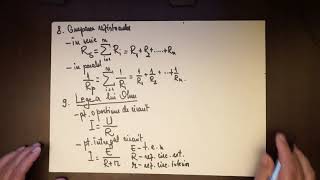 8. Gruparea rezistoarelor
- în serie
R_S = \sum_{i=1}^{n} R_i = R_1 + R_2 + ..... + R_n
- în paralel
\frac{1}{R_p} = \sum_{i=1}^{n} \frac{1}{R_i} = \frac{1}{R_1} + \frac{1}{R_2} + ... + \frac{1}{R_n}
9. Legea lui Ohm
- pt. o porțiune de circuit
I = \frac{U}{R}
- pt. întregul circuit
I = \frac{E}{R+r}
E - t.e.m
R - rez. circ. ext.
r - rez. circ. interior